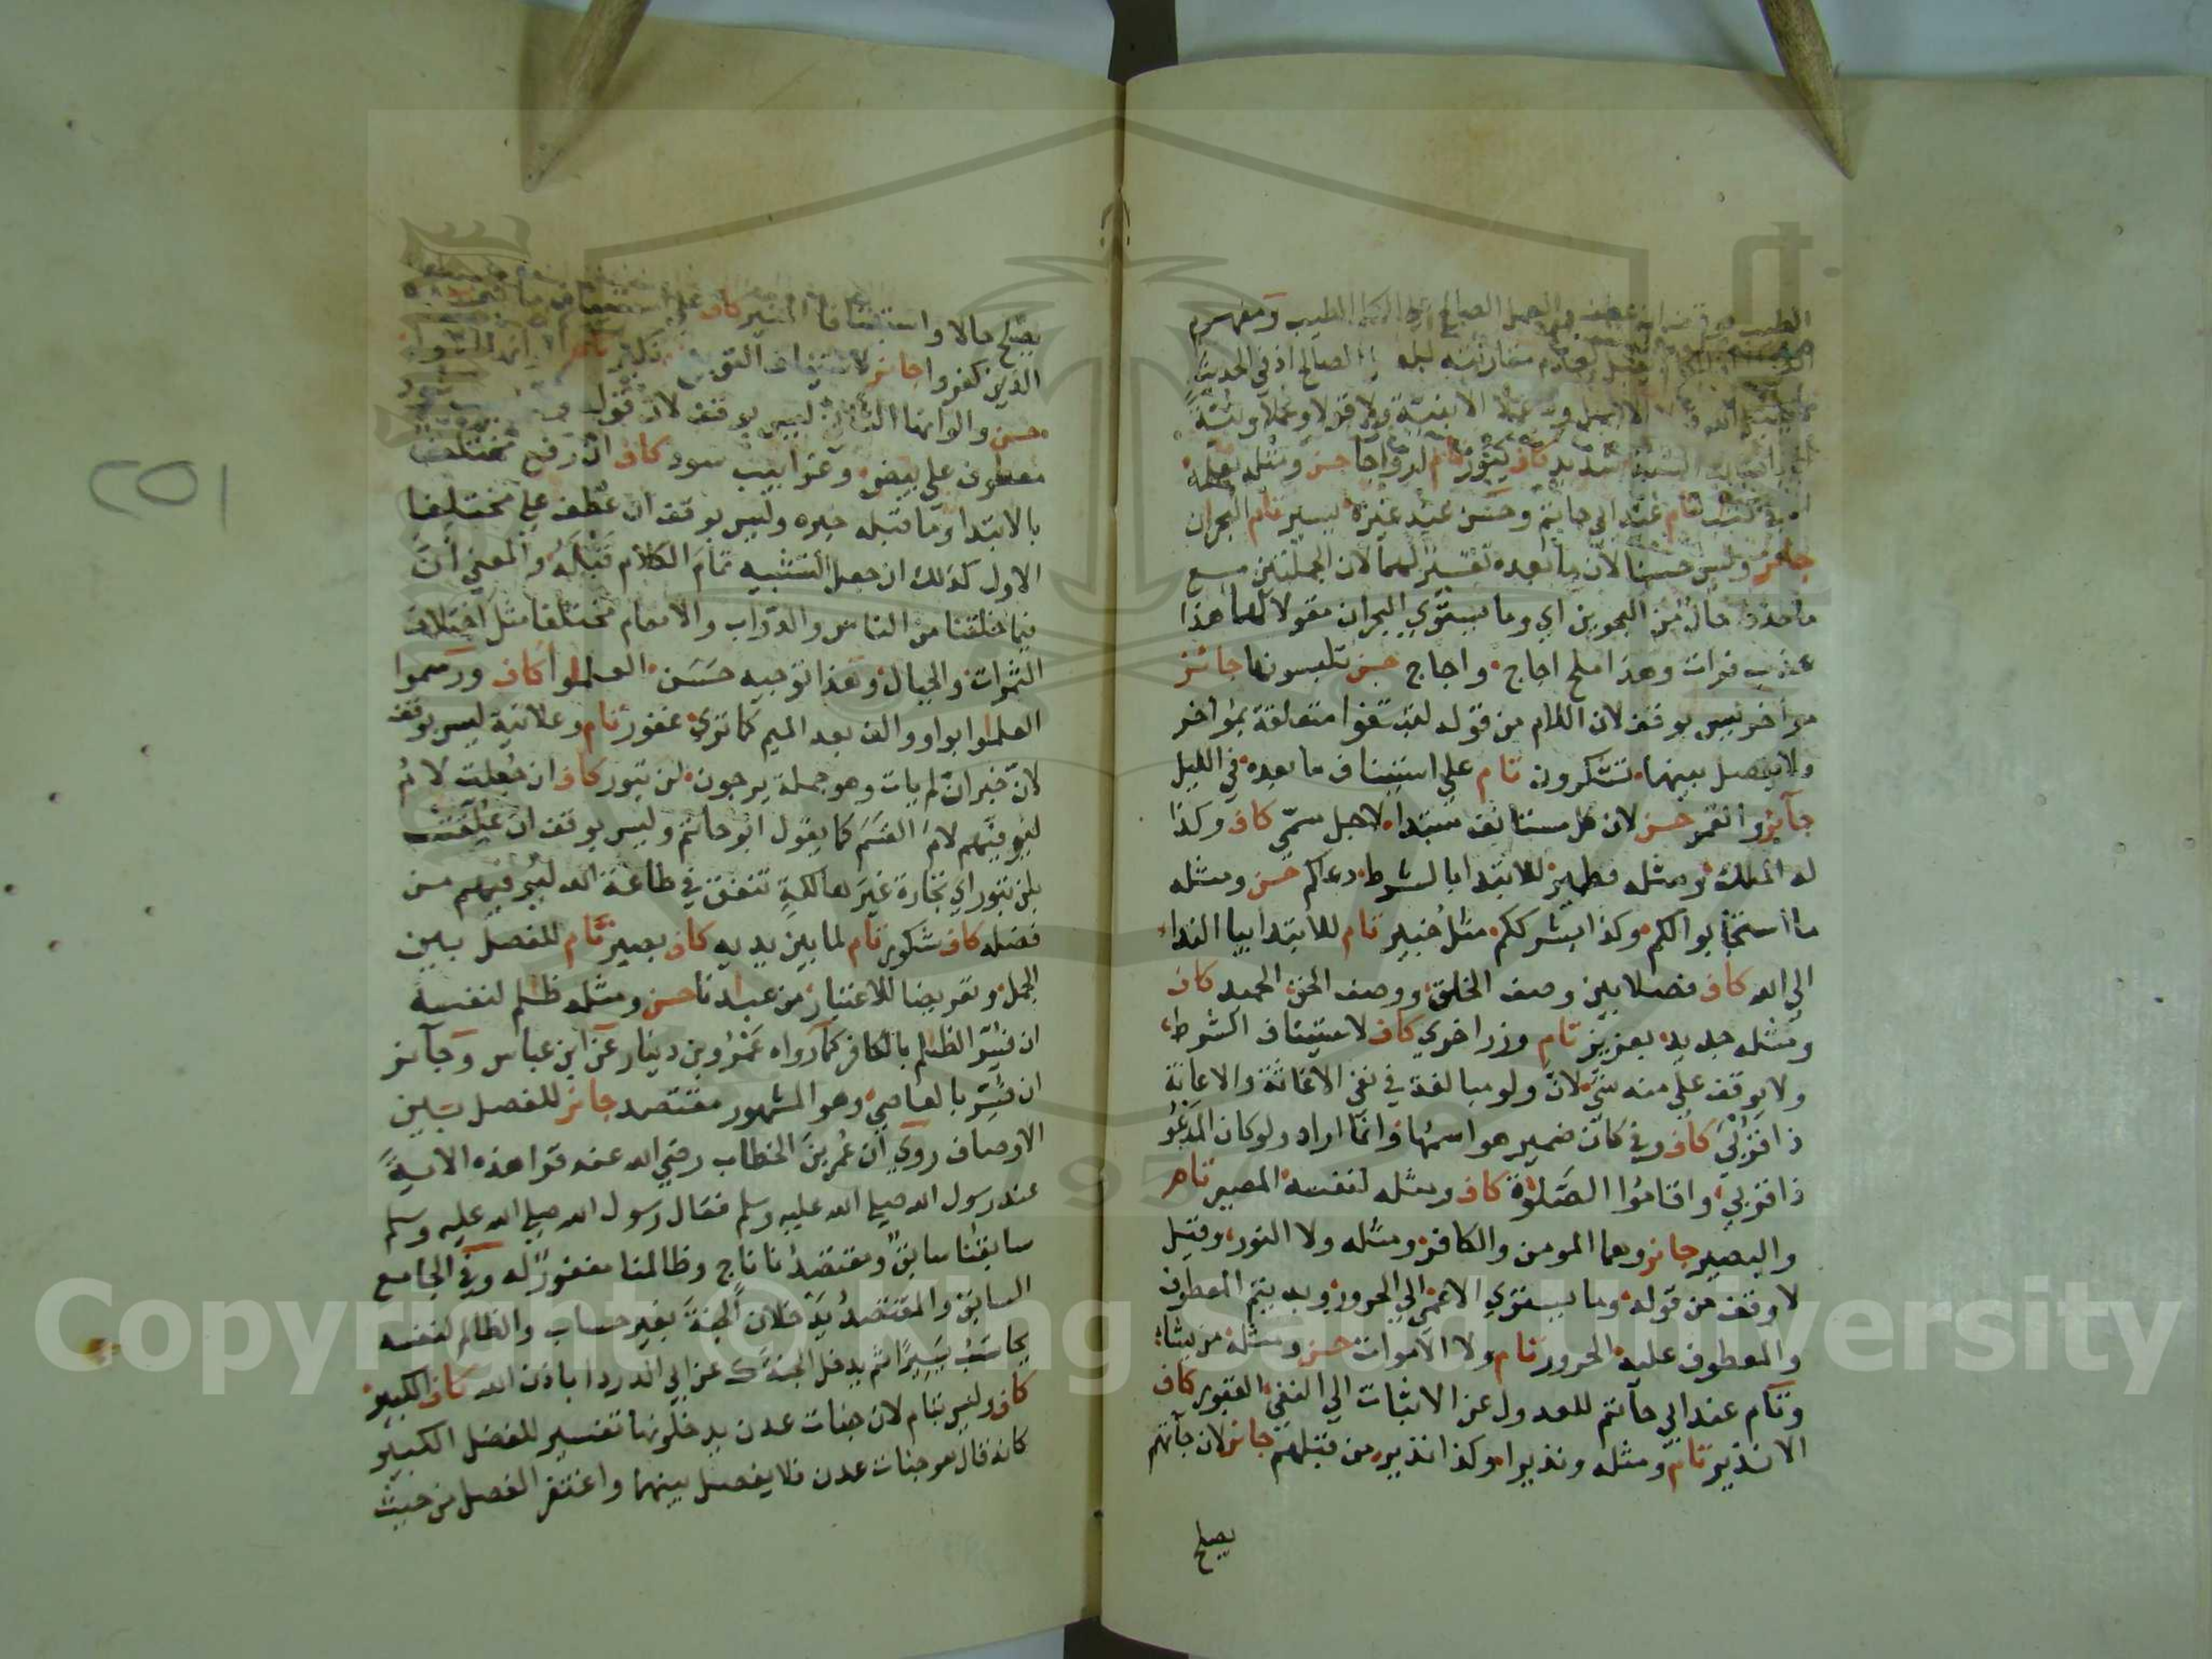 الطيب ومفهوم
الصالح اذ في الحديث
الا بنية ولا قولا وعملا ونية
شديد كاف يبور تام ازواجا حسن ومثله بعلمه
في كتاب تام عند ابي حاتم وحسن عند غيره يسير تام البحران
جائز وليس حسنا لان ما بعده تفسير لهما لان الجملتين مع
ما حذف حال من البحرين اي وما يستوي البحران مقولا لهما هذا
عذب فرات وهذا ملح اجاج واجاج حسن تلبسونها جائز
مواخر ليس بوقف لان اللام من قوله لتبتغوا متعلقة بمواخر
ولا يفصل بينهما تشكرون تام على استيناف ما بعده في الليل
جائز والقمر حسن لان كل مستانف مبتدا لاجل مسمى كاف وكذا
له الملك ومثله قطمير للابتدا بالشرط دعاكم حسن ومثله
ما استجابوا لكم وكذا بشرككم مثل خبير تام للابتدا بيا الندا
الى الله كاف فصلا بين وصف الخلق ووصف الحق الحميد كاف
ومثله جديد بعزيز تام وزر اخري كاف لاستيناف الشرط
ولا يوقف على منه شي لان ولو مبالغة في نفي الاغاثة والاعانة
ذا قربى كاف وفي كان ضمير هو اسمها وانما اراد ولو كان المدعو
ذا قربى واقاموا الصلوة كاف ومثله لنفسه المصير تام
والبصير جائز وهما المومن والكافر ومثله ولا النور وقيل
لا وقف من قوله وما يستوي الاعمى الي الحرور وبه يتم المعطوف
والمعطوف عليه الحرور تام ولا الاموات حسن ومثله من يشاء
وتام عند ابي حاتم للعدول عن الاثبات الي النفي القبور كاف
الا نذير تام ومثله ونذيرا وكذا نذير من قبلهم جائز لان جآتهم
يصلح
يصلح حالا واستينافا المنير كاف على استيناف ما بعده
الذين كفروا جائز لاستيناف التوبيخ نكير تام
حسن والوانها الثاني ليس بوقف لان قوله
معطوف على بيض وغرابيب سود كاف ان رفع مختلف
بالابتدا وما قبله خبره وليس بوقف ان عطف على مختلفا
الاول كذلك ان جعل التشبيه تمام الكلام قبله والمعنى ان
فيما خلقنا من الناس والدواب والانعام مختلفا مثل اختلاف
الثمرات والجبال وهذا توجيه حسن العلموا كاف ورسموا
العلموا بواو والف بعد الميم كما ترى غفور تام وعلانية ليس بوقف
لان خبر ان لم يات وهو جملة يرجون لن تبور كاف ان جعلت لام
ليوفيهم لام القسم كما يقول ابو حاتم وليس بوقف ان علقت
بلن تبور اي تجارة غير هالكة تنفق في طاعة الله ليوفيهم من
فضله كاف شكور تام لما بين يديه كاف بصير تام للفصل بين
الجمل وتعريضا للاعتبار من عبادنا حسن ومثله ظالم لنفسه
ان فسر الظالم بالكافر كما رواه عمرو بن دينار عن ابن عباس وجائز
ان فسر بالعاصي وهو المشهور مقتصد جائز للفصل بين
الاوصاف روي ان عمر بن الخطاب رضي الله عنه قرا هذه الاية
عند رسول الله صلى الله عليه وسلم فقال رسول الله صلى الله عليه وسلم
سابقنا سابق ومقتصدنا ناج وظالمنا مغفور له وفي الجامع
السابق والمقتصد يدخلان الجنة بغير حساب والظالم لنفسه
يحاسب يسيرا ثم يدخل الجنة ك عن ابي الدردا باذن الله كاف الكبير
كاف وليس بتام لان جنات عدن يدخلونها تفسير للفضل الكبير
كانه قال هو جنات عدن فلا يفصل بينهما واغتفر الفصل من حيث
٢٥١
Copyright © King Saud University